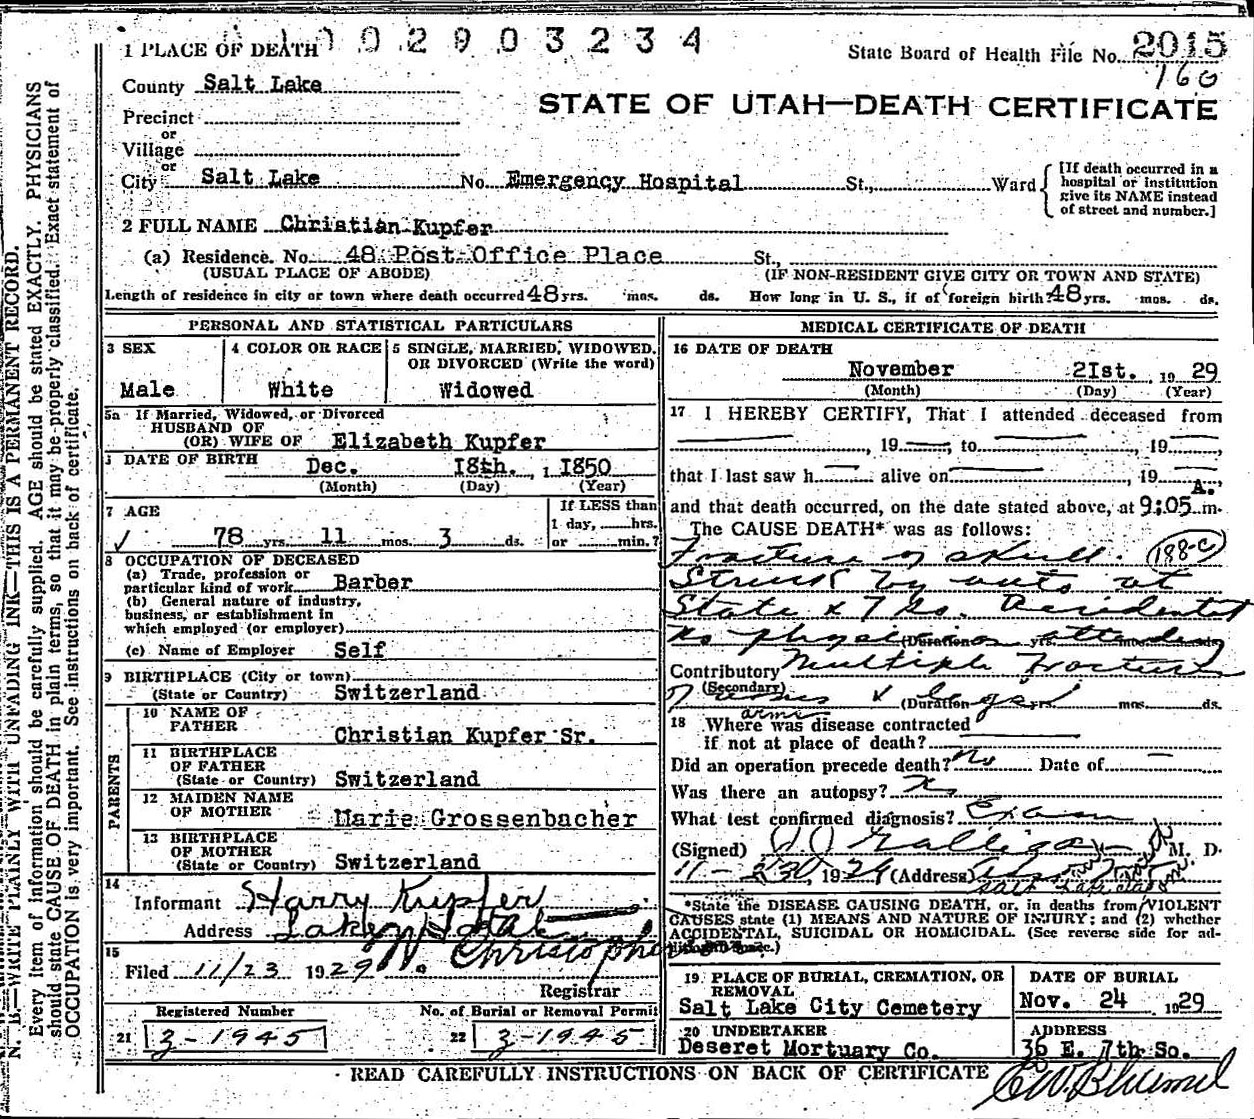 1 PLACE OF DEATH 1002903234
State Board of Health File No. 2015
160
County Salt Lake
STATE OF UTAH—DEATH CERTIFICATE
Precinct
or
Village
or
City Salt Lake No. Emergency Hospital St., Ward
[If death occurred in a
hospital or institution
give its NAME instead
of street and number.]
2 FULL NAME Christian Kupfer
(a) Residence. No. 48 Post Office Place St.,
(USUAL PLACE OF ABODE) (IF NON-RESIDENT GIVE CITY OR TOWN AND STATE)
Length of residence in city or town where death occurred 48 yrs. mos. ds. How long in U. S., if of foreign birth? 48 yrs. mos. ds.
PERSONAL AND STATISTICAL PARTICULARS
3 SEX 4 COLOR OR RACE 5 SINGLE, MARRIED, WIDOWED,
OR DIVORCED (Write the word)
Male White Widowed
5a If Married, Widowed, or Divorced
HUSBAND OF
(OR) WIFE OF Elizabeth Kupfer
DATE OF BIRTH Dec. 18th. 1 1850
(Month) (Day) (Year)
7 AGE If LESS than
1 day, hrs.
78 yrs. 11 mos. 3 ds. or min.?
8 OCCUPATION OF DECEASED
(a) Trade, profession or
particular kind of work Barber
(b) General nature of industry,
business, or establishment in
which employed (or employer)
(c) Name of Employer Self
9 BIRTHPLACE (City or town)
(State or Country) Switzerland
PARENTS
10 NAME OF
FATHER Christian Kupfer Sr.
11 BIRTHPLACE
OF FATHER
(State or Country) Switzerland
12 MAIDEN NAME
OF MOTHER Marie Grossenbacher
13 BIRTHPLACE
OF MOTHER
(State or Country) Switzerland
14
Informant Harry Kupfer
Address Laken Hotel
15
Filed 11/23 1929
Registrar
Registered Number No. of Burial or Removal Permit
21 3-1945 22 3-1945
MEDICAL CERTIFICATE OF DEATH
16 DATE OF DEATH
November 21st. 19 29
(Month) (Day) (Year)
17 I HEREBY CERTIFY, That I attended deceased from
, 19 to , 19 ,
that I last saw h alive on , 19 ,
A.
and that death occurred, on the date stated above, at 9:05 m.
The CAUSE DEATH* was as follows:
Fracture of skull. 188-c
Struck by auto at
State & 7 So. Accidental
No physician attending
(Duration) yrs. mos. ds.
Contributory Multiple Fracture
(Secondary)
of arms & legs
arms
(Duration yrs. mos. ds.
18 Where was disease contracted
if not at place of death?
Did an operation precede death? No Date of
Was there an autopsy? No
What test confirmed diagnosis? Exam
(Signed) M. D.
11-23, 1929 (Address)
*State the DISEASE CAUSING DEATH, or, in deaths from VIOLENT
CAUSES state (1) MEANS AND NATURE OF INJURY; and (2) whether
ACCIDENTAL, SUICIDAL OR HOMICIDAL. (See reverse side for ad-
ditional space.)
19 PLACE OF BURIAL, CREMATION, OR
REMOVAL
Salt Lake City Cemetery
DATE OF BURIAL
Nov. 24 1929
20 UNDERTAKER
Deseret Mortuary Co.
ADDRESS
36 E. 7th So.
READ CAREFULLY INSTRUCTIONS ON BACK OF CERTIFICATE
N. B.—WRITE PLAINLY WITH UNFADING INK—THIS IS A PERMANENT RECORD.
Every item of information should be carefully supplied. AGE should be stated EXACTLY. PHYSICIANS
should state CAUSE OF DEATH in plain terms, so that it may be properly classified. Exact statement of
OCCUPATION is very important. See instructions on back of certificate.